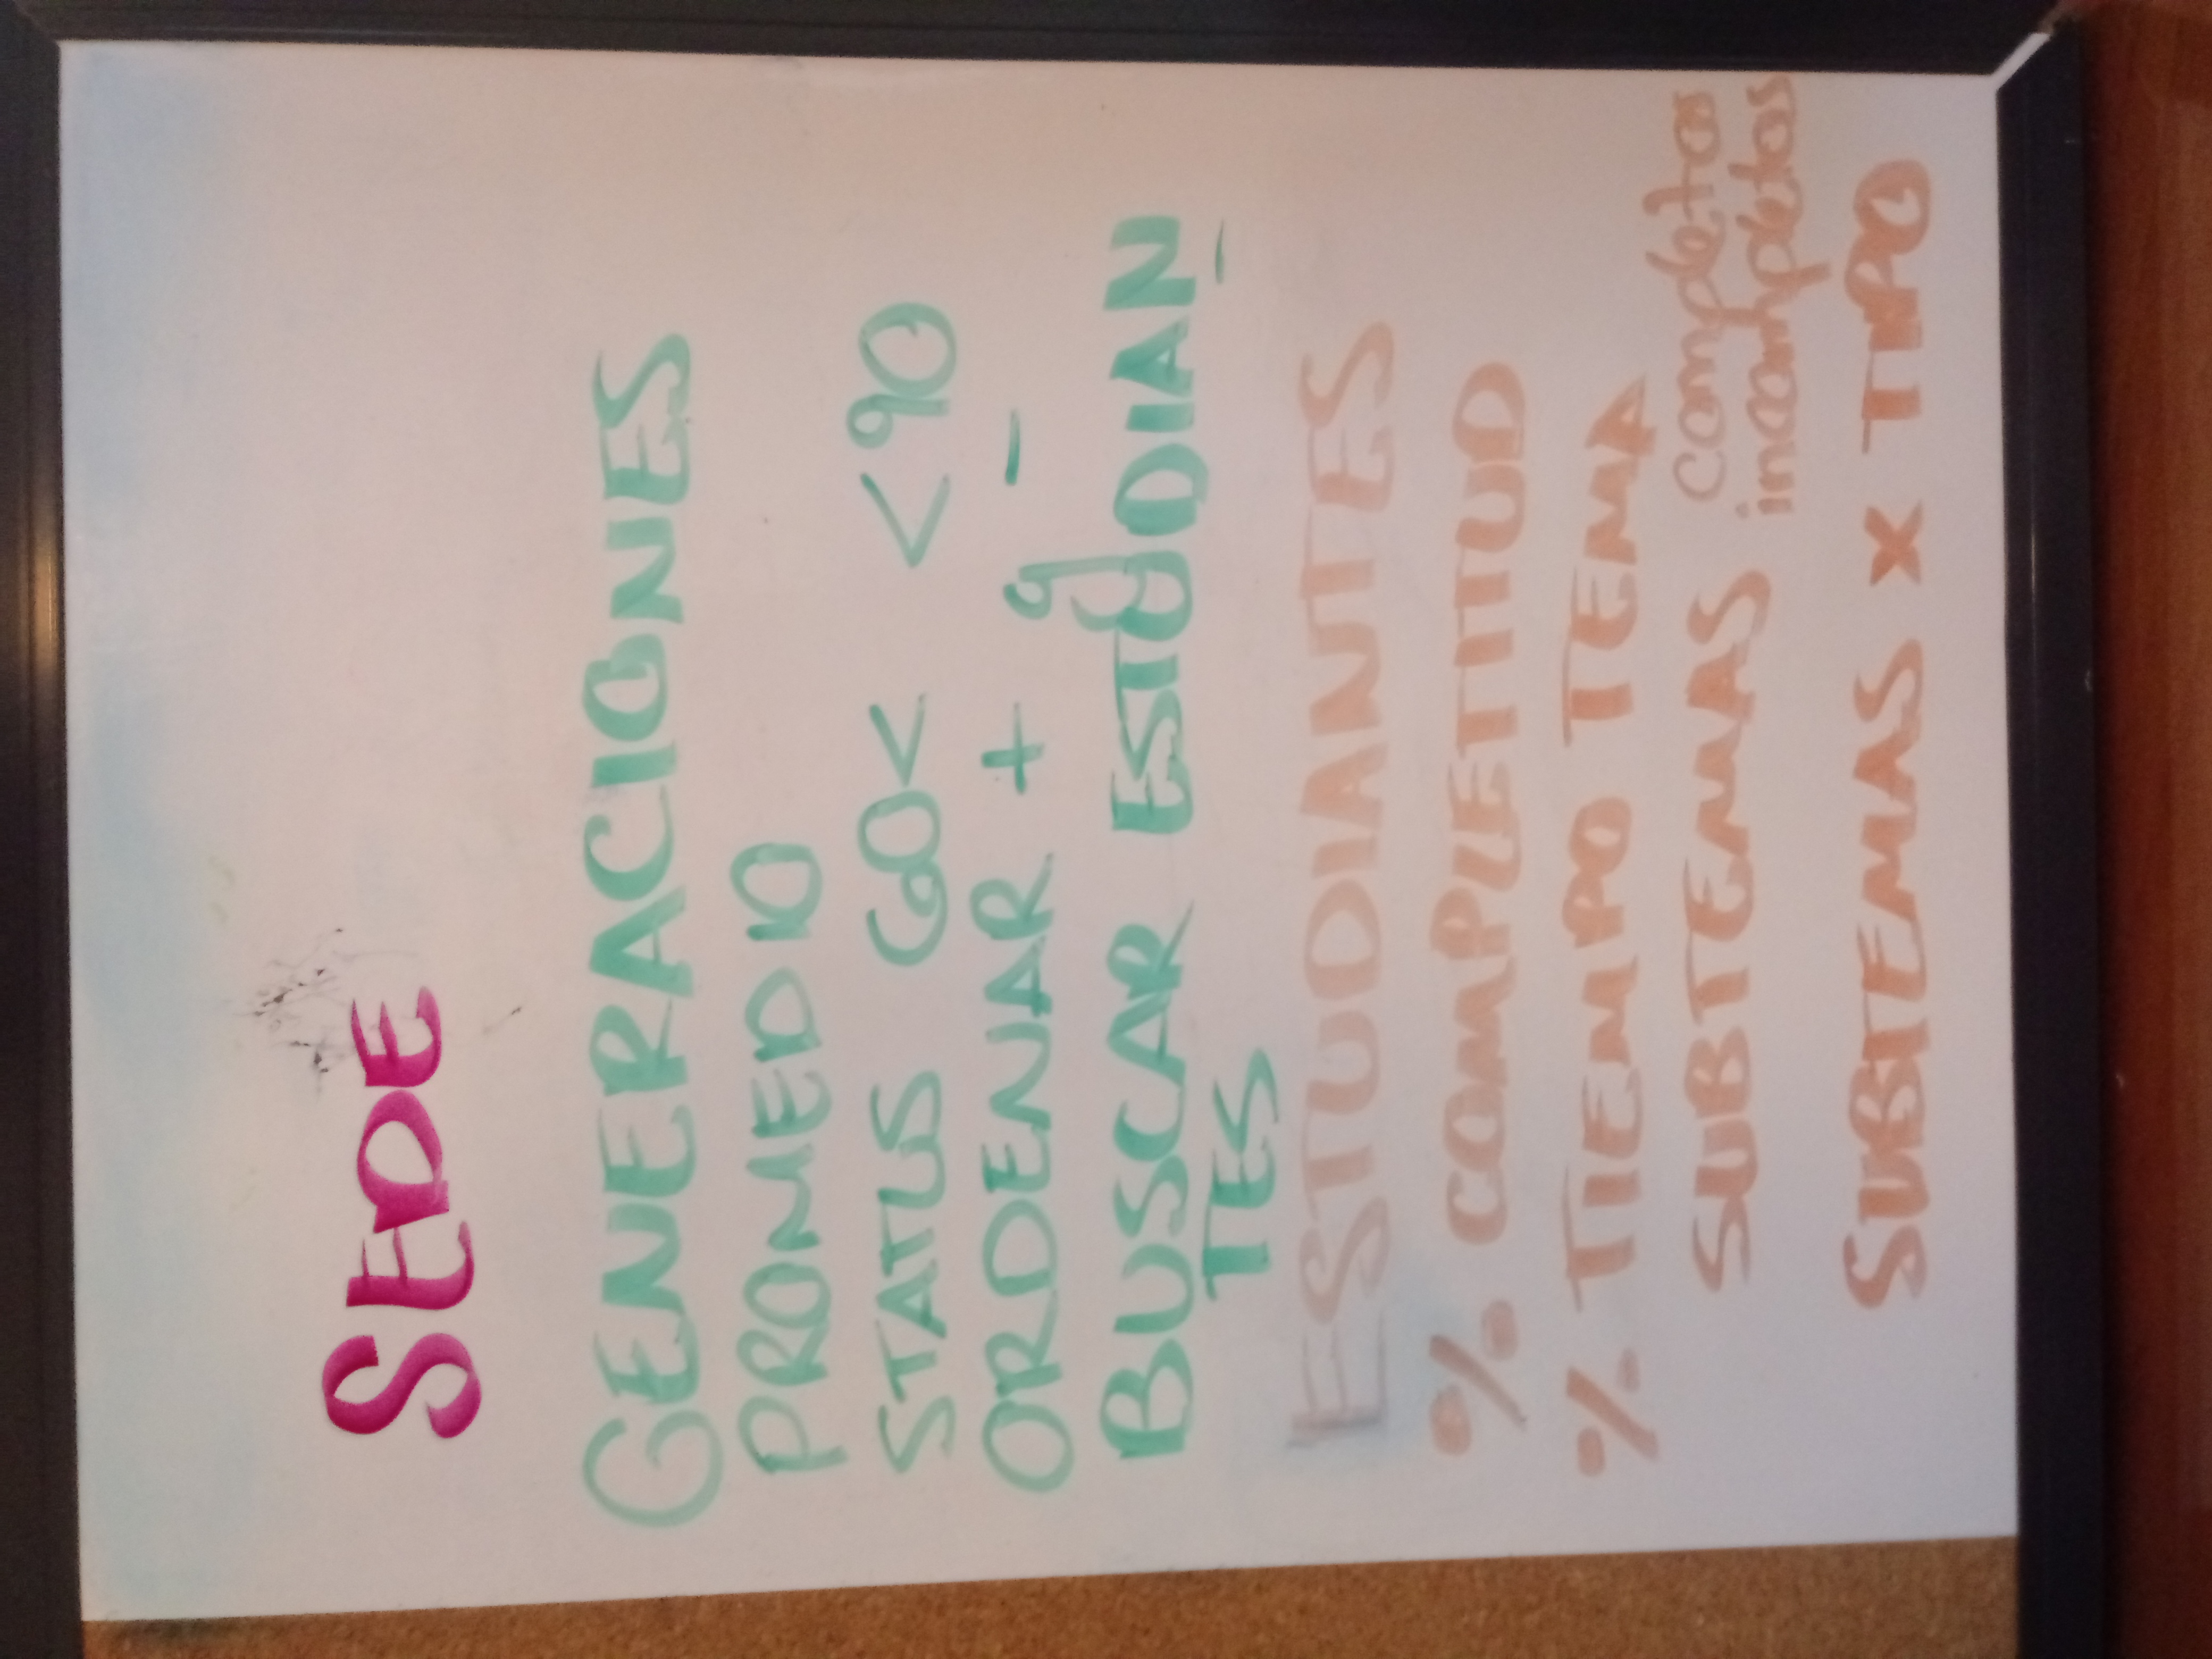 SEDE
GENERACIONES
PROMEDIO
STATUS 60< <90
ORDENAR + y -
BUSCAR ESTUDIAN
TES
ESTUDIANTES
% COMPLETITUD
% TIEMPO TEMA
SUBTEMAS completos
incompletos
SUBTEMAS x TIPO